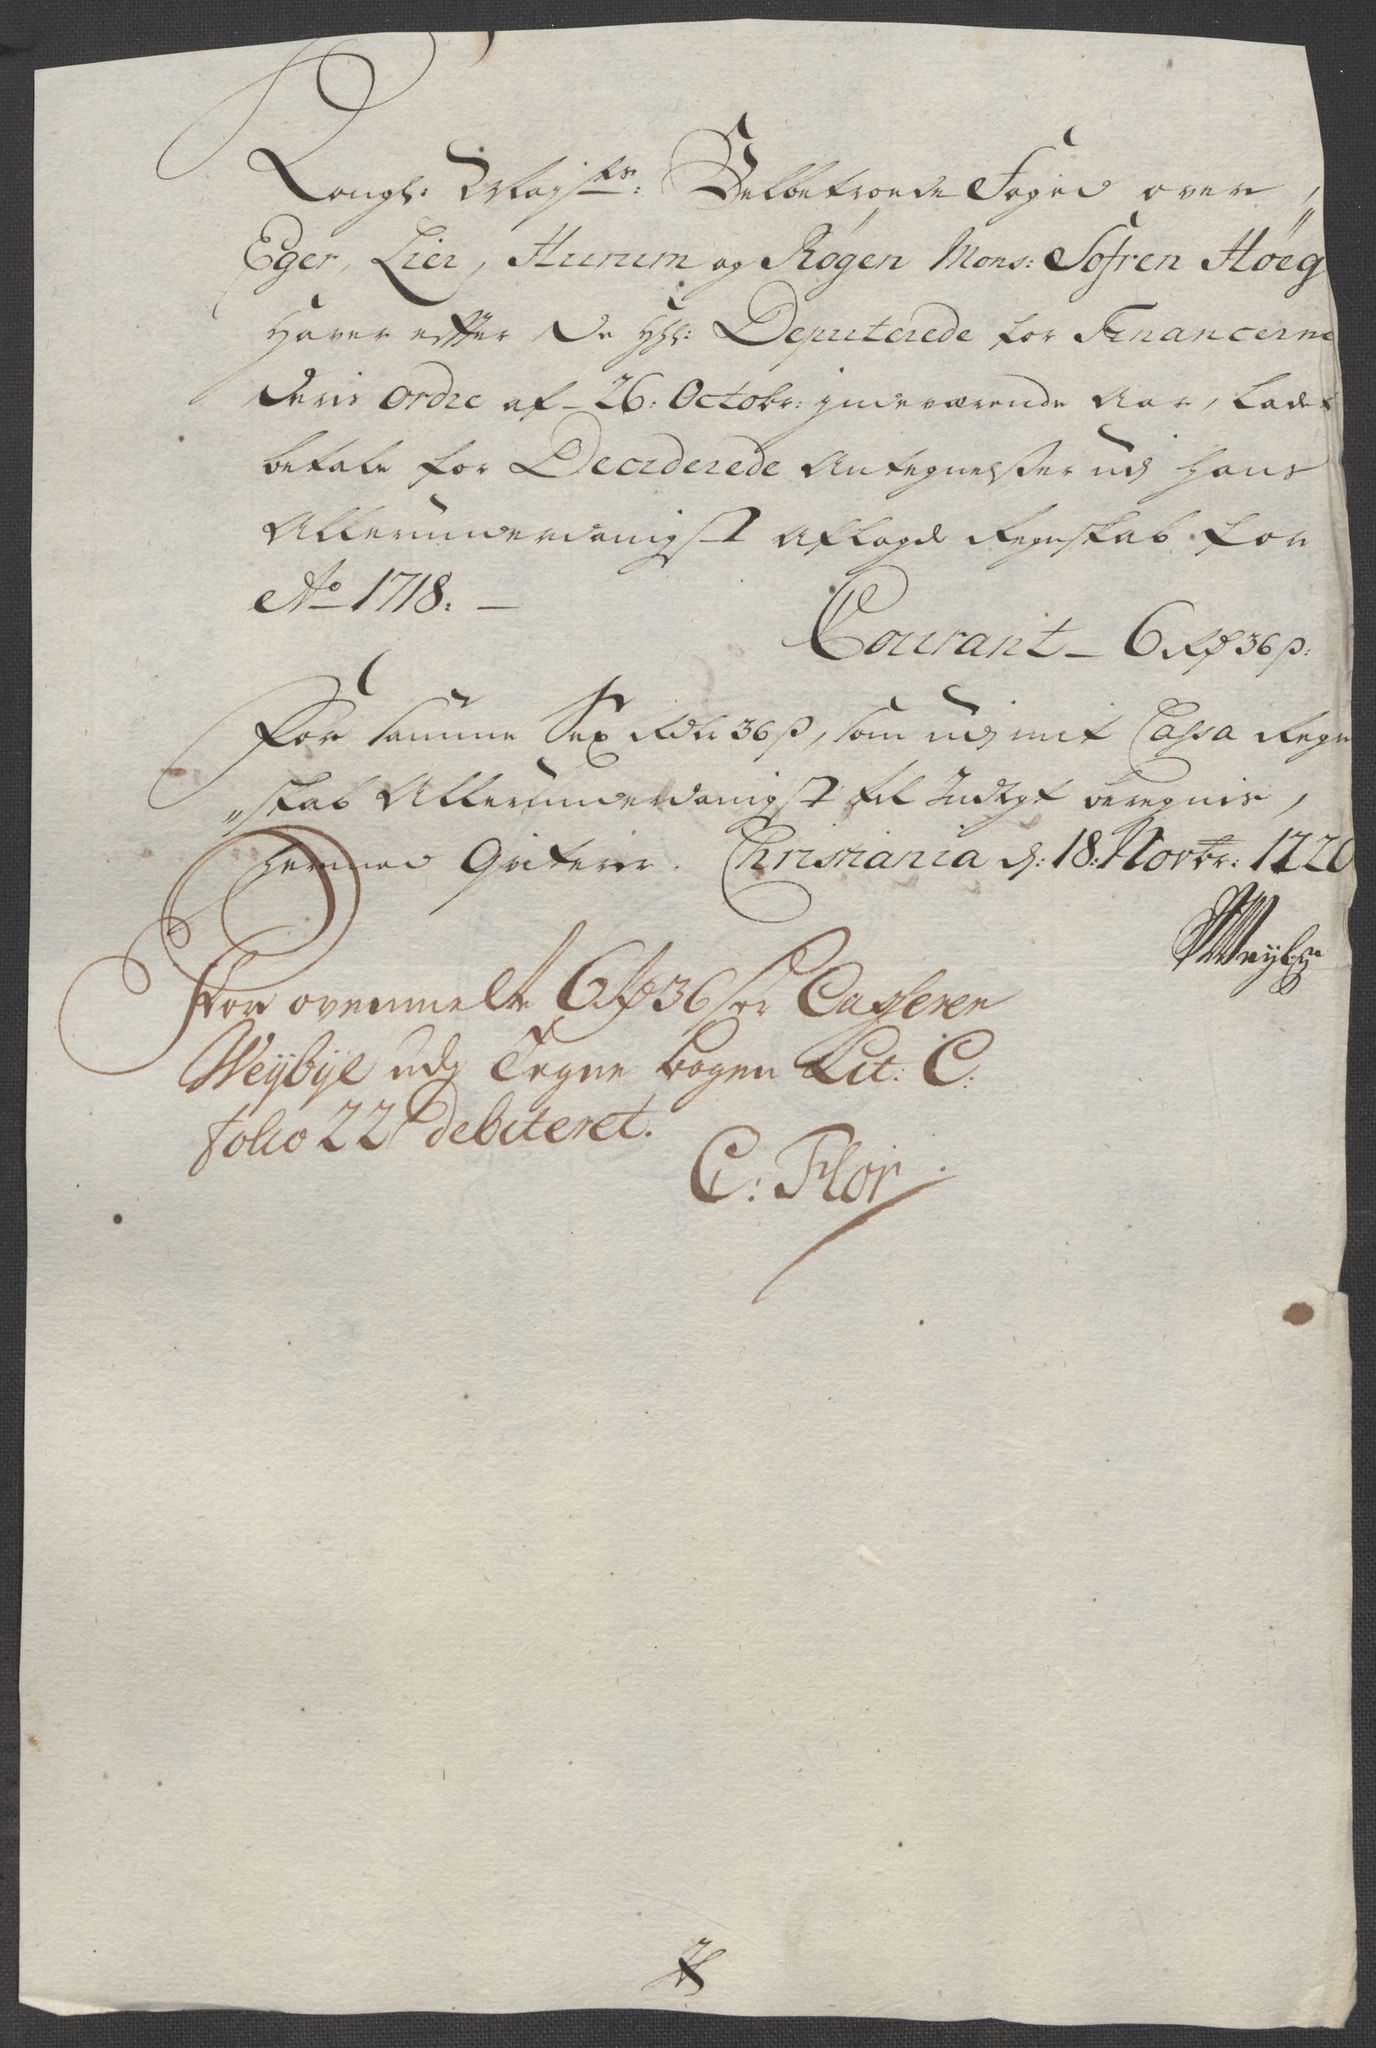 Kongl: Mayts: Velbetroede Foged over
Eger, Lier, Hurum og Røgen Mons: Søfren Høeg
Haver efter De HH: Deputerede for Financerne
Deris Ordre af 26: Octobr: indeværende Aar, Ladet
betale for Deciderede Antegnelser udj hans
Allerunderdanigst Aflagde Regnskab for
Ao 1718: —
Courant — 6 Rd 36 s:
For samme Sex Rdlr 36 s, som udj mit Cassa Regn
"skab Allerunderdanigst til Indtegt beregnis,
hermed Qviteris. Christiania d: 18: Novbr: 1720
Weybye
For ovenmelte 6 Rd 36 s er Casseren
Weybye udj Tegne bogen Lit: C:
folio 22 debiteret.
C: Flor